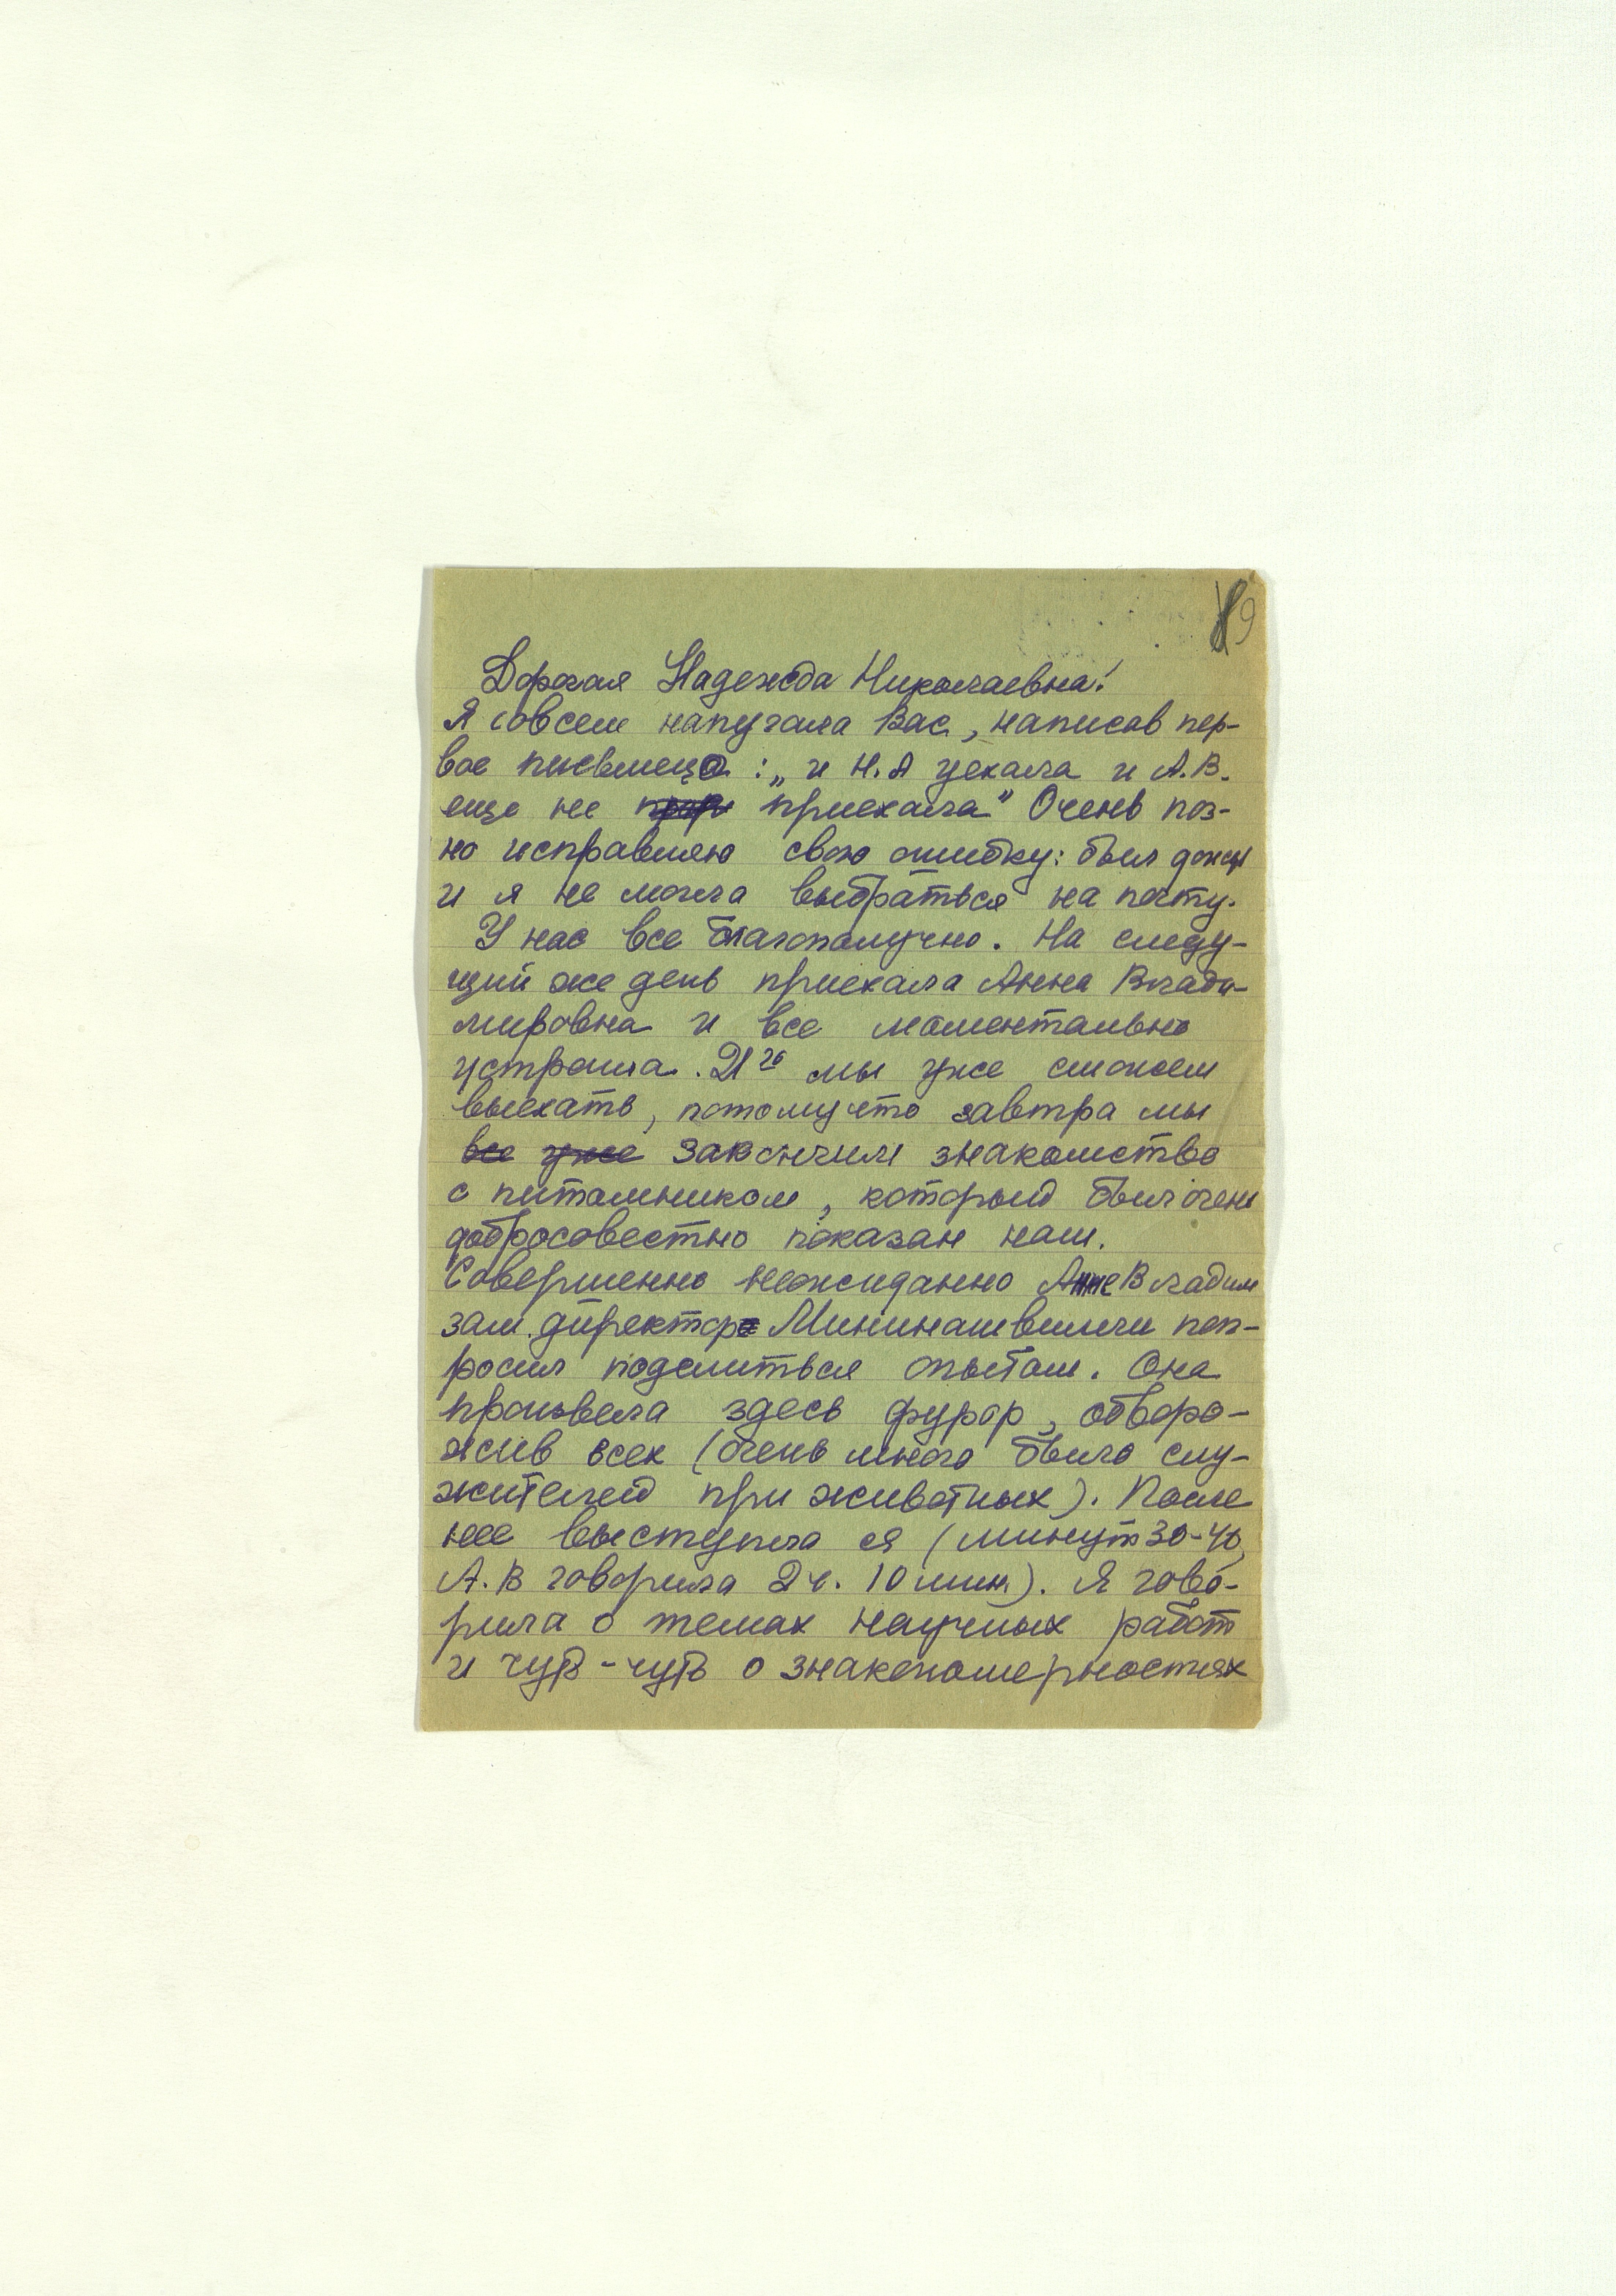 9
Дорогая Надежда Николаевна!
Я совсем напугала Вас, написав пер-
вое письмецо: „и Н.А уехала и А.В.
еще не приехала" Очень поз-
но исправляю свою ошибку: был дождь
и я не могла выбраться на почту.
У нас все благополучно. На следу-
щий же день приехала Анна Влади-
мировна и все моментально
устроила. 21го мы уже сможем
выехать, потому что завтра мы
все уже закончим знакомство
с питомником, который был очень
добросовестно показан нам.
Совершенно неожиданно Анне Владим
зам. директор Мининашвили поп-
росил поделиться опытом. Она
произвела здесь фурор, обворо-
жив всех (очень много было слу-
жителей при животных). После
нее выступила я (минут 30-40,
А.В говорила 2 ч. 10 мин.). Я гово-
рила о темах научных работ
и чуть-чуть о знакономерностях